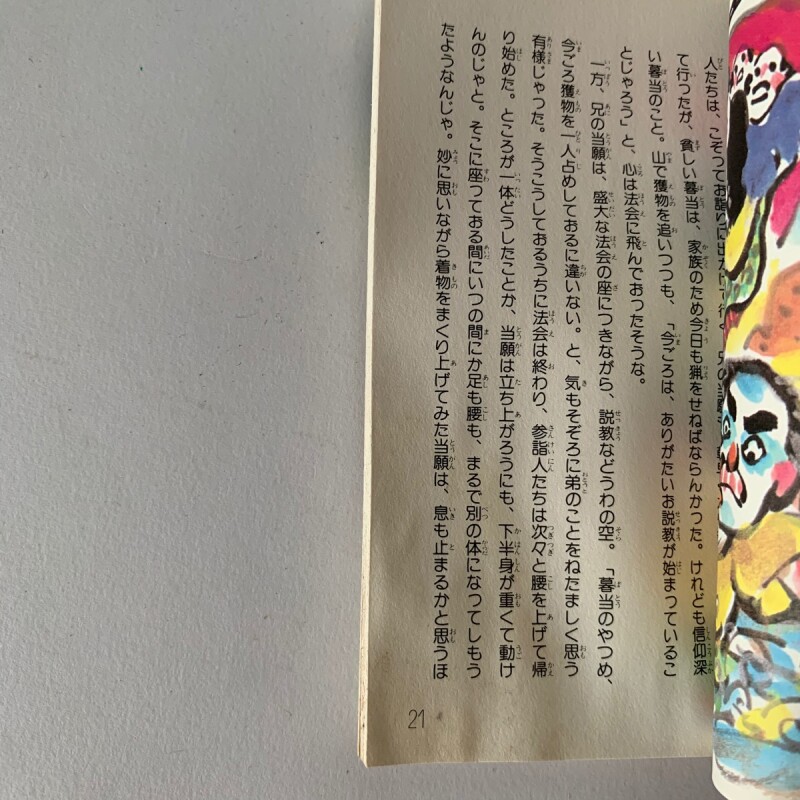 人たちは、こぞってお詣りに出かけて行
て行ったが、貧しい暮当は、家族のため今日も猟をせねばならんかった。けれども信仰深
い暮当のこと。山で獲物を追いつつも、「今ごろは、ありがたいお説教が始まっているこ
とじゃろう」と、心は法会に飛んでおったそうな。
一方、兄の当願は、盛大な法会の座につきながら、説教などうわの空。「暮当のやつめ、
今ごろ獲物を一人占めしておるに違いない。と、気もそぞろに弟のことをねたましく思う
有様じゃった。そうこうしておるうちに法会は終わり、参詣人たちは次々と腰を上げて帰
り始めた。ところが一体どうしたことか、当願は立ち上がろうにも、下半身が重くて動け
んのじゃと。そこに座っておる間にいつの間にか足も腰も、まるで別の体になってしもう
たようなんじゃ。妙に思いながら着物をまくり上げてみた当願は、息も止まるかと思うほ
21